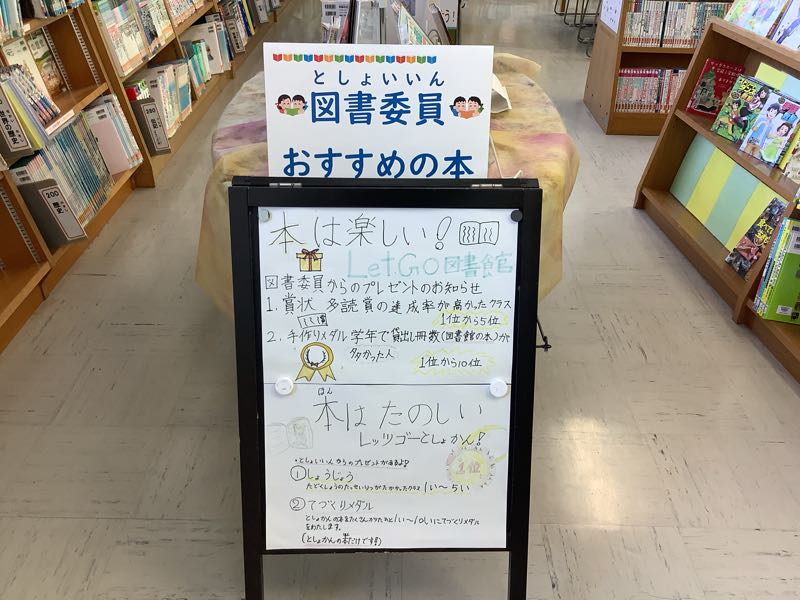 としょいいん
図書委員
おすすめの本
本は楽しい!
Let.GO図書館
図書委員からのプレゼントのお知らせ
1. 賞状 多読賞の達成率が高かったクラス
1位から5位
2. 手作りメダル 学年で貸出し冊数(図書館の本)が
多かった人
1位から10位
ほん
本は たのしい
レッツゴーとしょかん!
・としょいいんからのプレゼントがあるよ!
1位
①しょうじょう
たどくしょうのたっせいりつがたかかったクラス 1い〜5い
②てづくりメダル
としょかんの本をたくさんかりた人1い〜10いにてづくりメダル
をわたします。
(としょかんの本だけです!)